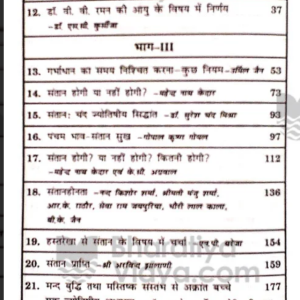 12. डॉ. वी. वी. रमन की आयु के विषय में निर्णय 37
-एस.सी. कुर्सीजा
भाग-III
13. गर्भाधान का समय निश्चित करना-कुछ नियम-उर्मिल जैन 53
14. संतान होगी या नहीं होगी? -महेन्द्र नाथ केदार 73
15. संतान: चंद ज्योतिषीय सिद्धांत -डॉ. सुरेश चंद मिश्रा 93
16. पंचम भाव-संतान सुख -गोपाल कृष्ण गोयल 97
17. संतान होगी? या नहीं होगी? कितनी होगी? 112
-महेन्द्र नाथ केदार एवं के.सी. अग्रवाल
18. संतानहीनता -नन्द किशोर शर्मा, श्रीमती चंदु शर्मा, 136
आर.के. राठौर, सेवा राम जयपुरिया, चौरी लाल काला,
वी.के. जैन
19. हस्तरेखा से संतान के विषय में चर्चा -एन.पी. 154
20. संतान प्राप्ति -श्री अरविन्द 159
21. मन्द बुद्धि तथा मस्तिष्क संस्तंभ से अक्रांत बच्चे 177